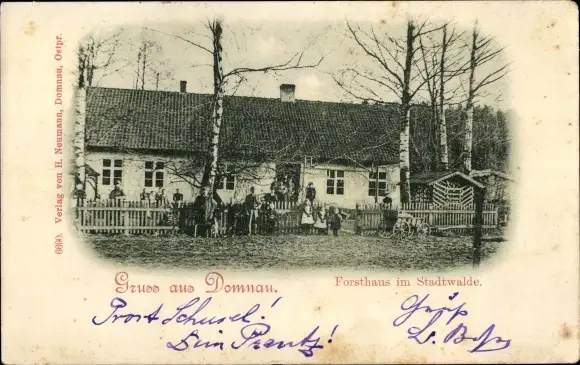 6690. Verlag von H. Neumann, Domnau, Ostpr.
Gruss aus Domnau.
Forsthaus im Stadtwalde.
Prost Schusel!
Dein Prantz!
Gruß
L.